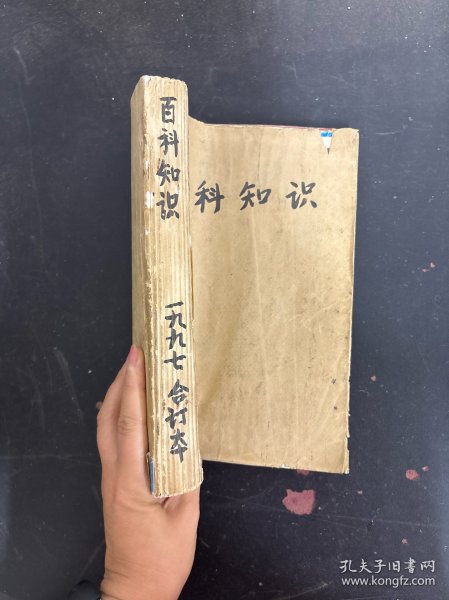 百科知识
一九九七合订本
科知识
孔夫子旧书网
www.kongfz.com